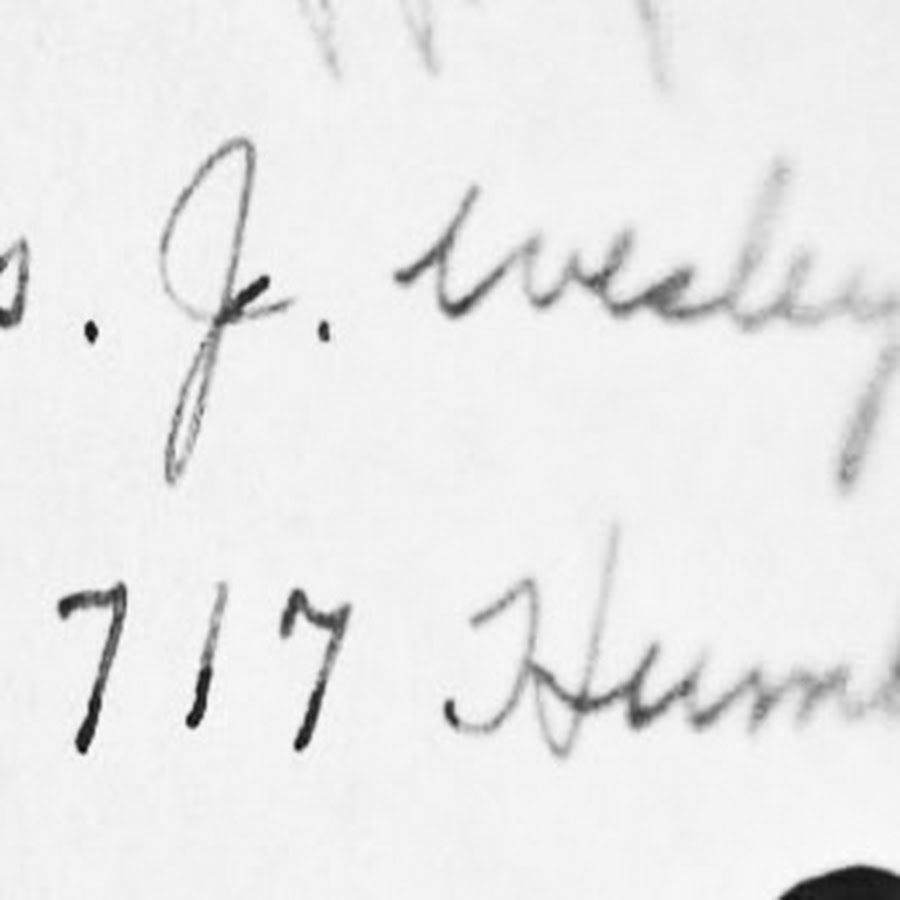 s. J. Wesley
717 Humb